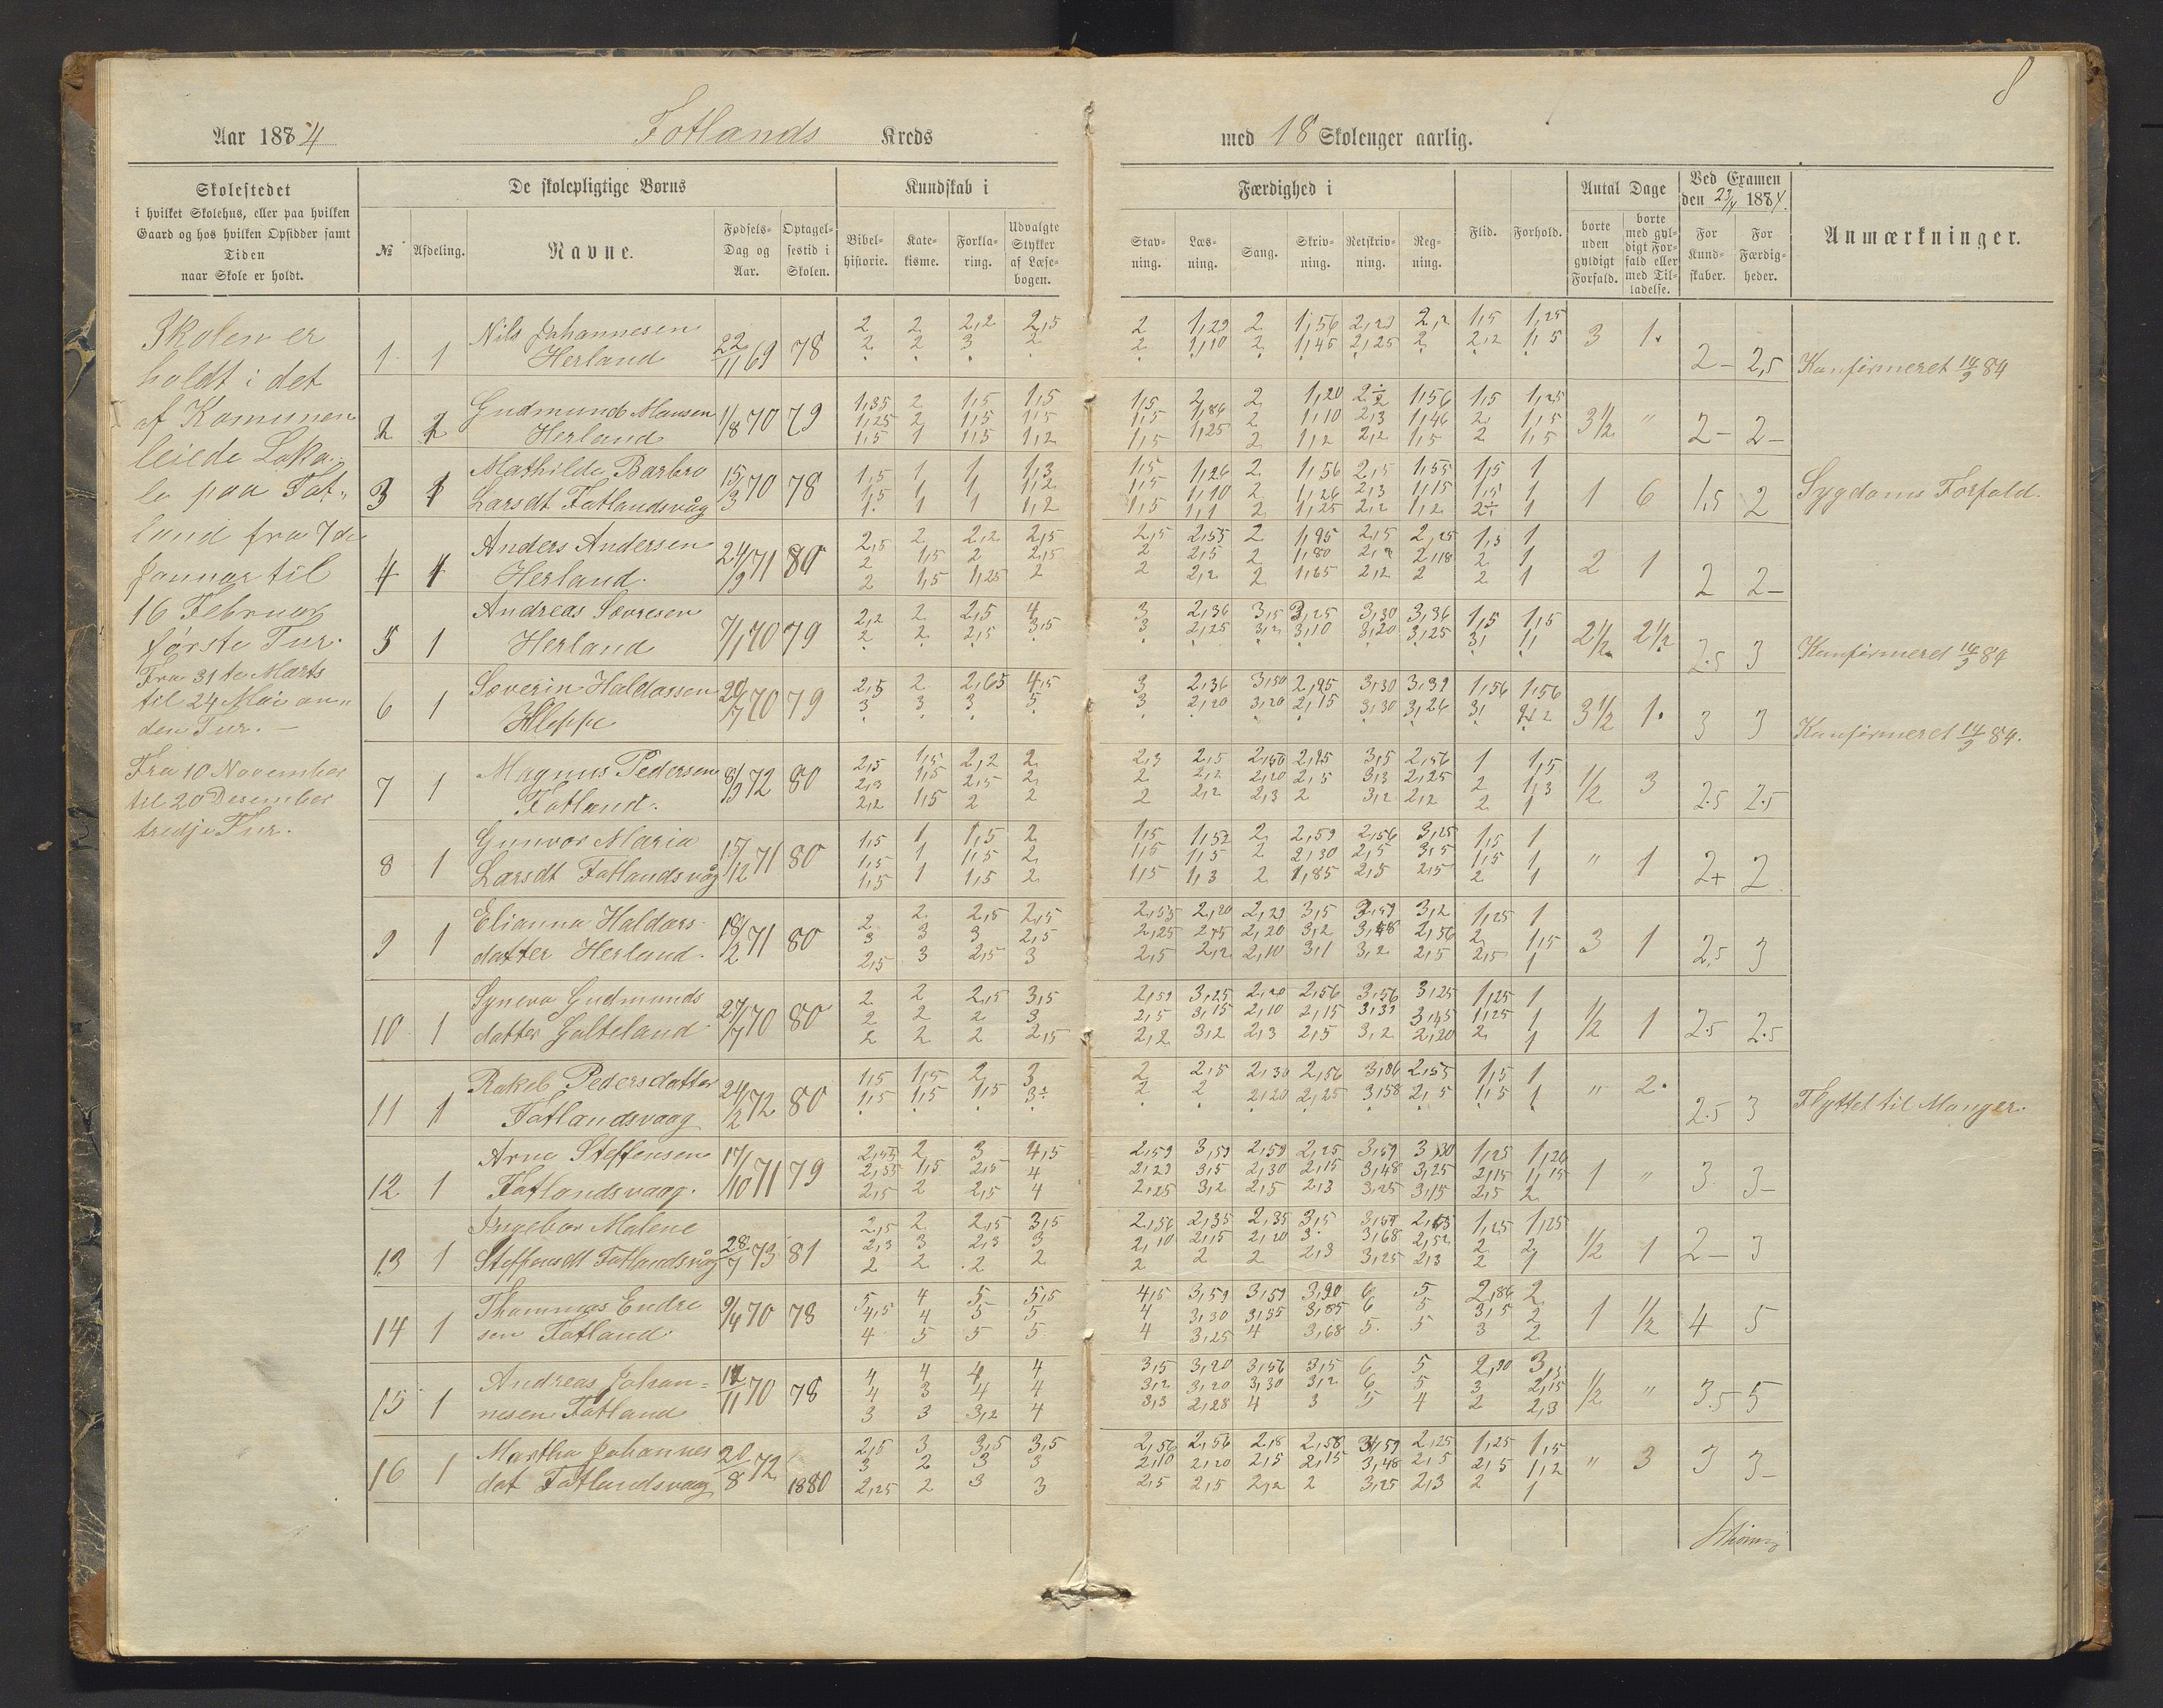 8
Aar 1884 Fotlands Kreds med 18 Skoleuger aarlig.
Skolestedet
i hvilket Skolehus, eller paa hvilken
Gaard og hos hvilken Opsidder samt
Tiden
naar Skole er holdt.
De skolepligtige Børns
№ Afdeling. Navne. Fødsels-Dag og Aar. Optagelsestid i Skolen.
Kundskab i
Bibelhistorie. Katekisme. Forklaring. Udvalgte Stykker af Læsebogen.
Færdighed i
Stavning. Læsning. Sang. Skrivning. Retskrivning. Regning.
Flid. Forhold.
Antal Dage
borte uden gyldigt Forfald. borte med gyldigt Forfald eller med Tilladelse.
Ved Examen
den 23/4 1884.
For Kundskaber. For Færdigheder.
Anmærkninger.
Skolen er
holdt i det
af Komunen
leiede Loka-
le paa Fot-
land fra 7de
Januar til
16 Februar
første Tur.
Fra 31te Marts
til 24 Mai an-
den Tur. —
Fra 10 November
til 20 Desember
tredje Tur.
1 1 Nils Johannesen
Herland 22/11 69 78
2 2 2,2 2,5 2 1,29 2 1,56 2,2 1,5 1,25
2 2 3 2 2 1,10 2 1,45 2,25 2 2,2 1,5
3 1. 2- 2,5 Konfirmeret 14/9 84
2 2 Gudmund Monsen
Herland 1/8 70 79
1,35 2 1,5 1,5 1,5 2 2 1,20 1,56 1,5 1,25
1,25 2 1,5 1,5 1,5 1,86 2 1,10 2,3 1,46 2 1,5
1,5 1 1,5 1,2 1,5 1,25 2 1,2 2,2 1,5 2 1,5
3½ " 2- 2-
3 1 Mathilde Barbro
Larsdt Fotlandsvåg 15/3 70 78
1,5 1 1 1,3 1,5 1,26 2 1,56 2,5 1,55 1,5 1
1,5 1 1 1,2 1,5 1,10 2 1,26 2,3 1,15 1,5 1
1. 1 1 1,2 1,5 1,1 2 1,25 2,2 1,2 1
1 6 1,5 2 Sygdoms Forfald.
4 1 Anders Andersen
Herland. 24/9 71 80
2,5 2 2,2 2,5 2,5 2,55 2 1,95 2,5 2,25 1,5 1
2 1,5 2 2,5 2 2,5 2 1,80 2,2 2,18 2 1
2 1,5 1,25 2 2 2,2 2 1,65 2,2 2 2 1
2 1 2 2-
5 1 Andreas Sevresen
Herland 7/1 70 79
2,2 2 2,5 4 3 2,36 3,5 3,25 3,30 3,36 1,5 1,5
2 2 2,5 3,5 3 2,25 3,2 3,10 3,20 3,25
2½ 2½ 2.5 3 Konfirmeret 14/9 84
6 1 Severin Haldorsen
Kleppe 20/7 70 79
2,5 2 2,65 4,5 3 2,36 3,50 2,95 3,30 3,39 1,56 1,56
3 3 3 5 3 2,20 3,20 2,15 3,30 3,26
3½ 1. 3 3 Konfirmeret 14/9 84.
7 1 Magnus Pedersen
Fotland. 8/3 72 80
2,5 1,5 2,2 2 2,3 2,5 2,50 2,95 3,5 2,56 1 1,5
2,3 1,5 2,5 2 2 2,2 2,20 2,5 3,3 2,25 2 1,3
2,2 1,5 2 2 2 2,2 2,3 2 3,2 2,2 2 1
½ 3 2.5 2.5
8 1 Gunvor Maria
Larsdt Fotlandsvåg 15/12 71 80
1,5 1 1,5 2 1,5 1,52 2 2,59 2,56 3,25 1,5 1
1,5 1 1,5 2 1,5 1,5 2 2,30 2,5 3,5 1,5 1
1,5 1 1,5 2 1,5 1,3 2 1,85 2,5 2,5 2 1
" 1 2+ 2
9 1 Elianna Haldors-
datter Herland. 18/2 71 80
2 2 2,5 2,5 2,55 2,20 2,29 3,5 3,59 3,2 1,25 1
3 3 3 2,5 2,25 2,15 2,20 3,2 3,48 2,56 2 1,5
2,5 3 2,5 3 2,5 2,2 2,10 3,1 3,2 2,5 2,5 1
3 1 2,5 3
10 1 Syneva Gudmunds
datter Galteland 27/7 70 80
2 2 2,5 3,5 2,59 3,25 2,20 2,56 3,56 3,25 1,25 1
2 2 2 3 2,5 3,15 2,10 2,15 3,39 3,45 1,25 1
2 2 2 2,5 2,2 3,2 2,3 2,5 3,2 2,20 2 1
½ 1 2.5 2.5
11 1 Rakel Pedersdatter
Fotlandsvaag 24/2 72 80
1,5 1,5 2 3 2 2,5 2,30 2,56 3,86 2,55 1,5 1
1,5 1,5 1,5 2 2 2,20 2,25 3,58 2,5 1,5 1
" 2. 2.5 3 Flyttet til Manger.
12 1 Arne Steffensen
Fotlandsvaag. 17/10 71 79
2 3 4,5 2,59 3,59 2,59 2,25 3,59 3,30 1,25 1,26
2,35 1,5 2,5 4 2,29 3,5 2,30 2,15 3,48 3,25 2,15 1,15
2,5 2 2,5 4 2,25 3,2 2,5 2,3 3,25 3,15 2,5 2
1 " 3 3-
13 1 Ingebor Malene
Steffensdt Fotlandsvåg 28/7 73 81
2,5 2 2,5 3,5 2,56 2,35 2,35 3,5 3,59 1,25 1,25
2,3 3 2,3 3 2,10 2,15 2,20 3. 3,68 2,52 2 2
2 2 2 2 2 2 2 2,3 3,25 2,3 2 1
½ 1 2- 3
14 1 Thommas Endre
sen Fotland. 9/4 70 78
5 4 5 5,5 4,5 3,59 3,59 3,90 6 5 2,86 2
4,5 4 5 5 4 3,30 3,55 3,85 6 5 3,5 2
4 5 5 5 4 3,25 4 3,68 5. 5 3 2
1 ½ 4 5
15 1 Andreas Johan-
nesen Fotland 70 78
4 4 4 4 3,5 3,20 3,56 3,5 6 5 2,90
4 3 4 4 3,2 3,20 3,30 3,2 6 5 3 2,15
3 3 3,2 4 3,3 2,28 4 3 5 4 2 2,3
½ " 3.5 5
16 1 Martha Johannes
dat Fotlandsvaag 20/8 72 1880
2,5 3 3,5 3,5 2,56 2,56 2,8 2,58 2,25 1,25 1,5
3 2 3 3 2,10 2,20 2,5 2,15 3,48 2,5 2,5 1,2
2,25 2 3 3 2,5 2,5 2,2 2 3,25 2,3 2 1
" 3 3 3-